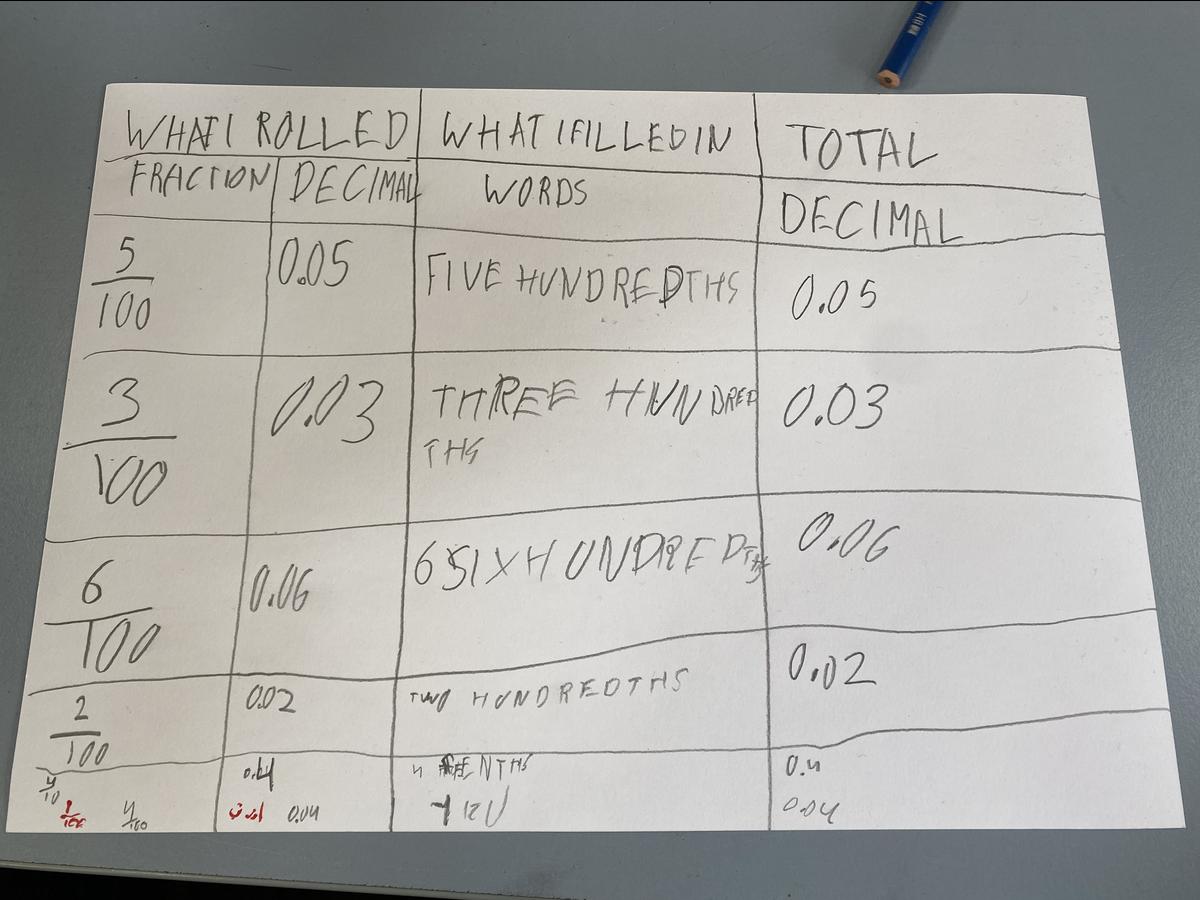 WHAT I ROLLED WHAT I FILLED IN TOTAL
FRACTION DECIMAL WORDS DECIMAL
5/100 0.05 FIVE HUNDREDTHS 0.05
3/100 0.03 THREE HUNDRED 0.03
THS
6/100 0.06 6 SIX HUNDREDTHS 0.06
2/100 0.02 TWO HUNDREDTHS 0.02
4/10 4 TENTHS 0.4
1/100 4/100 0.04 0.04